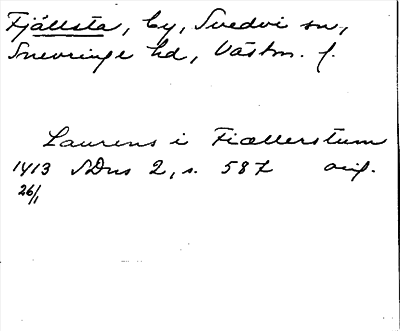 Fjällsta, by, Svedvi sn,
Snevringe hd, Västm. l.
Laurens i Fiællerstum
1413 SDns 2, s. 587 orig.
26/1